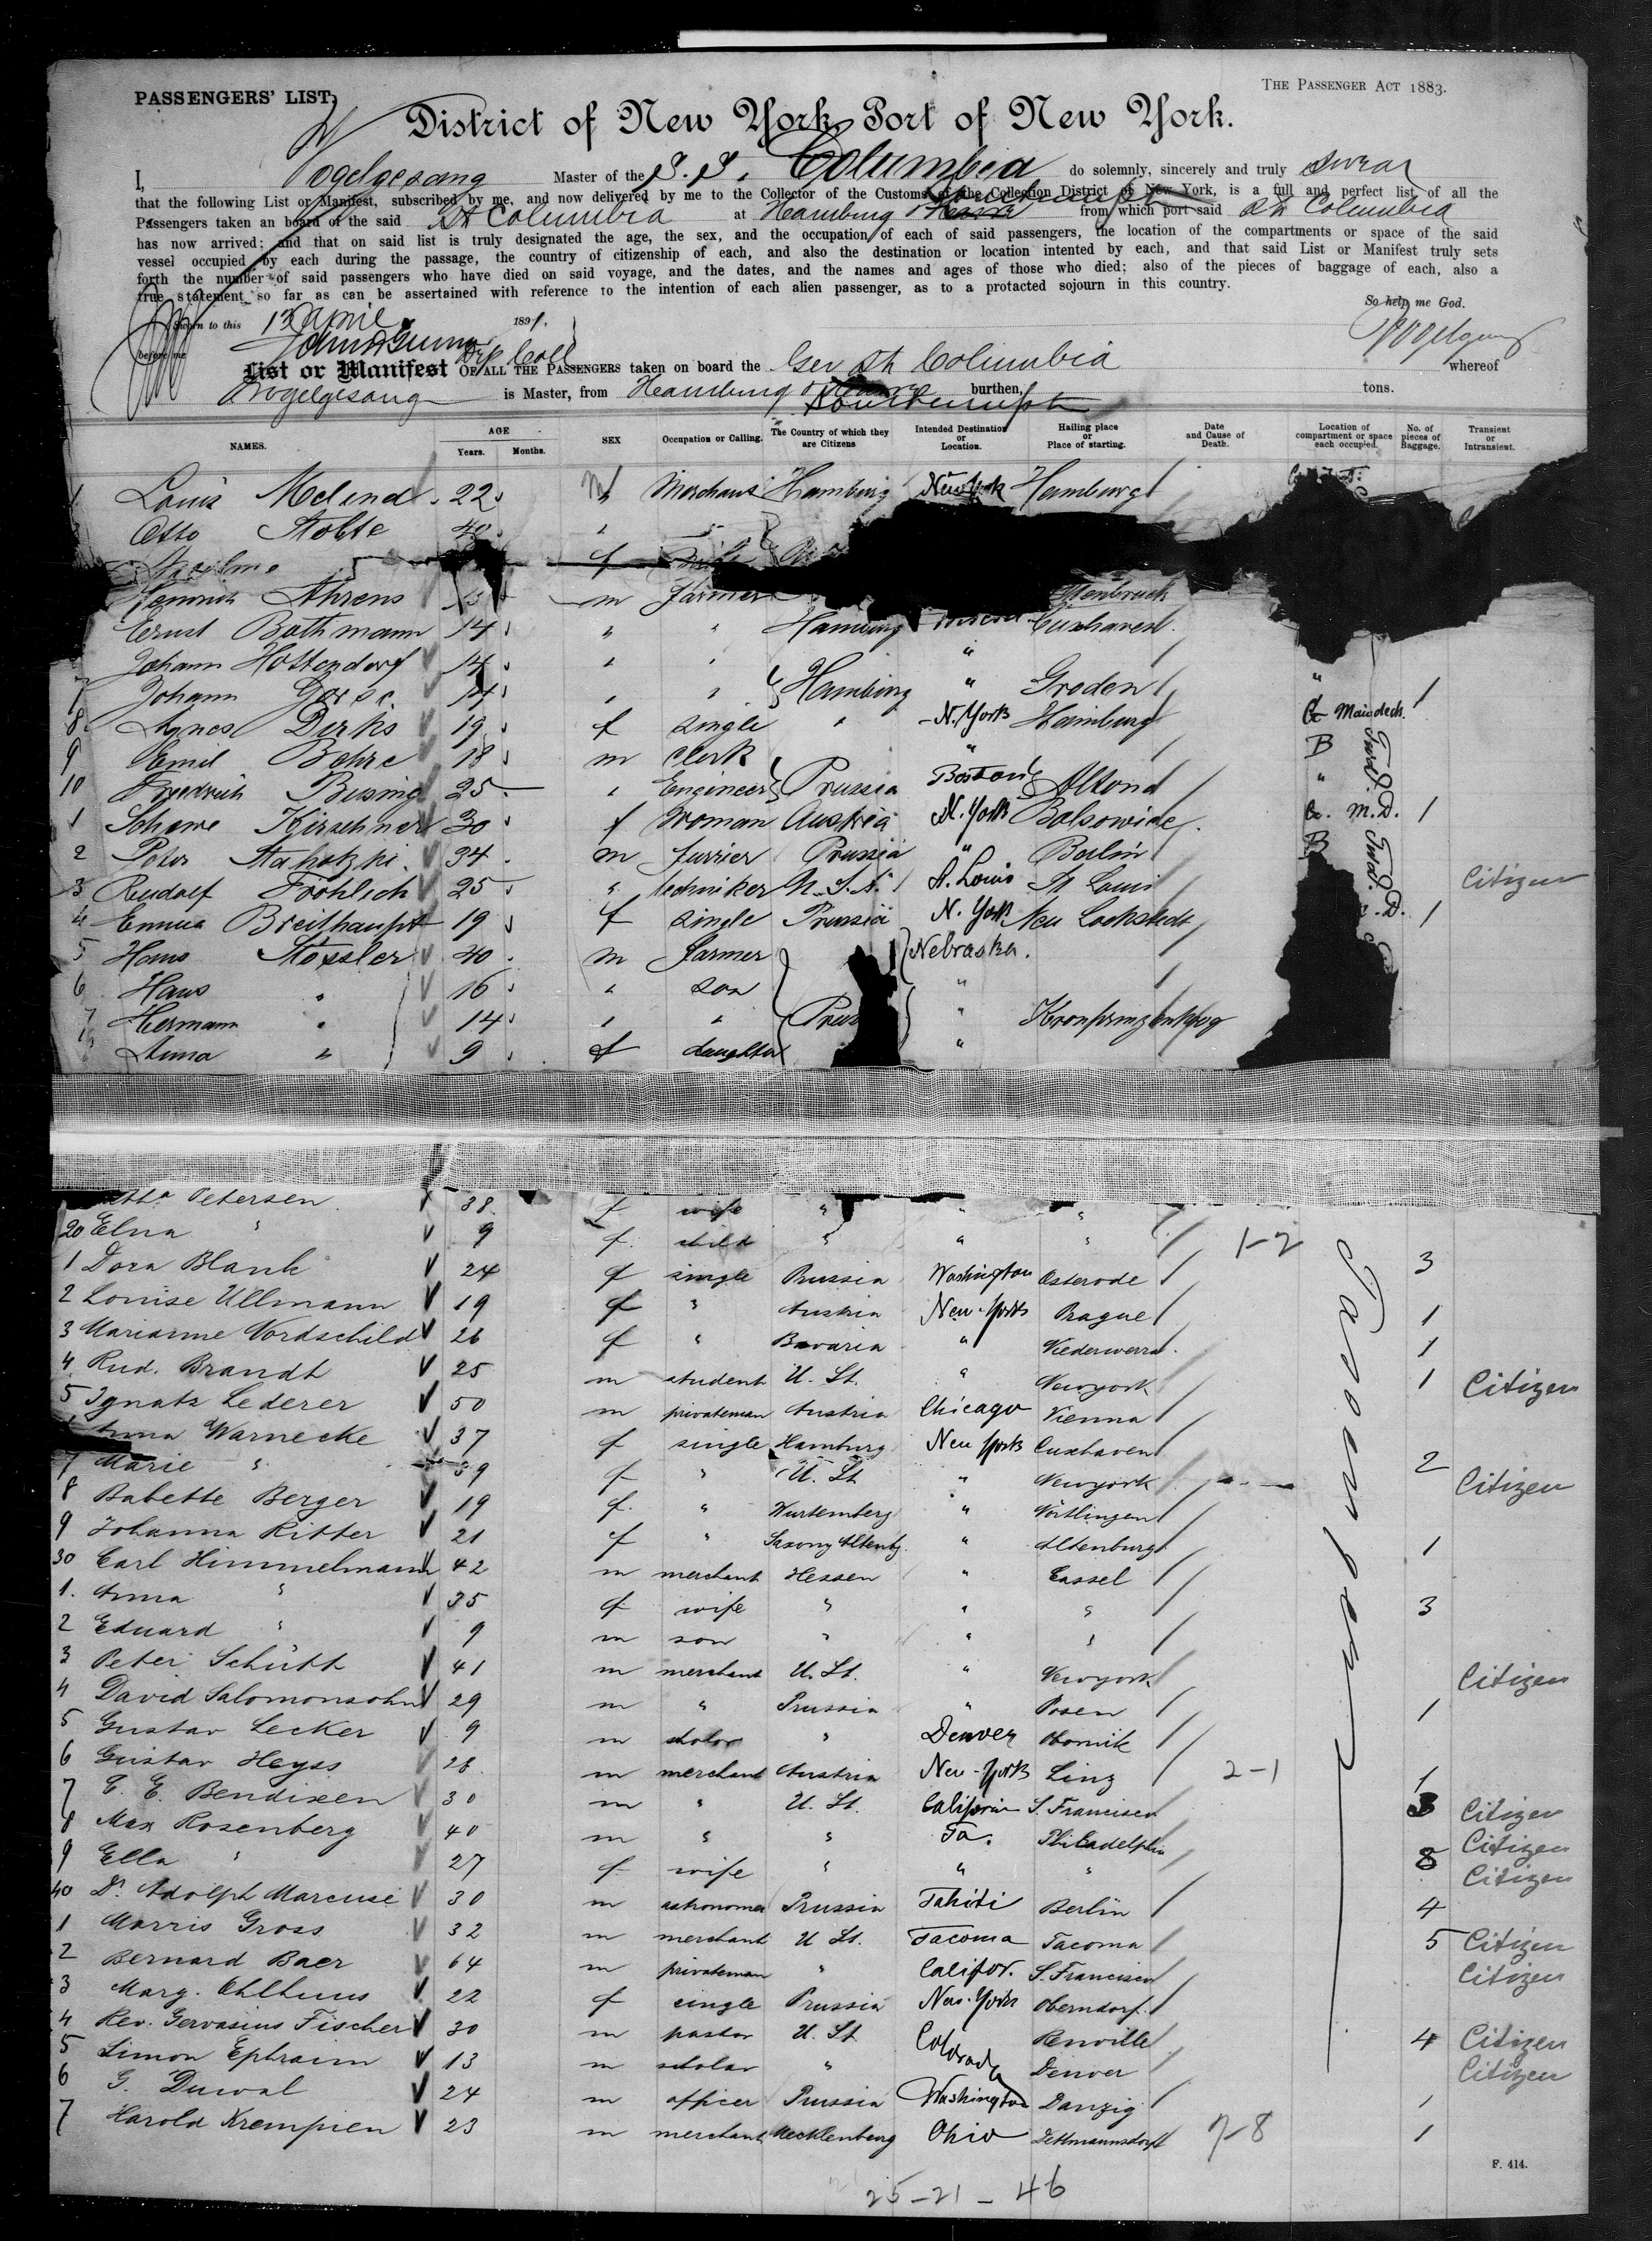 PASSENGERS' LIST.
THE PASSENGER ACT 1883.
District of New York, Port of New York.
I, Vogelgesang Master of the S. S. Columbia do solemnly, sincerely and truly swear
that the following List or Manifest, subscribed by me, and now delivered by me to the Collector of the Customs of the Collection District of New York, is a full and perfect list of all the
Passengers taken an board of the said St Columbia at Hamburg from which port said St Columbia
has now arrived; and that on said list is truly designated the age, the sex, and the occupation of each of said passengers, the location of the compartments or space of the said
vessel occupied by each during the passage, the country of citizenship of each, and also the destination or location intented by each, and that said List or Manifest truly sets
forth the number of said passengers who have died on said voyage, and the dates, and the names and ages of those who died; also of the pieces of baggage of each, also a
true statement so far as can be assertained with reference to the intention of each alien passenger, as to a protacted sojourn in this country.
So help me God.
Sworn to this 13 April 1891.
before me
Vogelgesang
List or Manifest OF ALL THE PASSENGERS taken on board the Ger St Columbia whereof
Vogelgesang is Master, from Hamburg burthen, tons.
NAMES. AGE Years. Months. SEX Occupation or Calling. The Country of which they are Citizens Intended Destination or Location. Hailing place or Place of starting. Date and Cause of Death. Location of compartment or space each occupied. No. of pieces of Baggage. Transient or Intransient.
1 Louis 22 m Merchant Hamburg New York Hamburg
Otto Stolte 40 "
f wife
Heinrich Ahrens m farmer
Ernst Bothmann 14 " " Hamburg Cuxhaven
Johann Hottendorf 14 " " "
7 Johann 14 " " Hamburg " Groden " 1
8 Agnes Dirks 19 f single " N. York Hamburg
9 Emil Bohre 18 m clerk " B
10 Friedrich Busing 25 " Engineer Prussia Boston Altona "
1 Kirschner 30 f woman Austria N. York M. D. 1
2 Peter 34 m furrier Prussia " Berlin B
3 Rudolf Frohlich 25 " techniker U. S. A. St. Louis St Louis Citizen
4 Emma Breithaupt 19 f single Prussia N. York Neu Lockstedt 1
5 Hans Stossler 40 m farmer Nebraska.
6 Hans " 16 " son "
7 Hermann " 14 " " "
Anna " 9 f daughter "
Petersen 38 f wife " " "
20 Elna " 9 f child " " " 1-2
1 Dora Blank 24 f single Prussia Washington Osterode 3
2 Louise Ullmann 19 f " Austria New-York Prague 1
3 Marianne Nordschild 26 f " Bavaria " 1
4 Rud. Brandt 25 m student U. St. " Newyork 1 Citizen
5 Ignatz Lederer 50 m privateman Austria Chicago Vienna
Anna Warnecke 37 f single Hamburg New York Cuxhaven
7 Marie " 39 f " U. St. " Newyork 2 Citizen
8 Babette Berger 19 f " Wurtemberg "
9 Johanna Ritter 21 f " Saxony Altenbg. " Altenburg 1
30 Carl Himmelmann 42 m merchant Hessen " Cassel
1. Anna " 35 f wife " " " 3
2 Eduard " 9 m son " " "
3 Peter Schütt 41 m merchant U. St. " Newyork Citizen
4 David Salomonsohn 29 m " Prussia " Posen 1
5 Gustav Lecker 9 m scholar " Denver Obornik
6 Gustav Heyss 28 m merchant Austria New-York Linz 2-1 1
7 C. E. Bendixen 30 m " U. St. California S. Francisco 3 Citizen
8 Max Rosenberg 40 m " " Pa. Philadelphia Citizen
9 Ella " 27 f wife " " " 8 Citizen
40 Dr. Adolph Marcuse 30 m astronomer Prussia Tahiti Berlin 4
1 Morris Gross 32 m merchant U St. Tacoma Tacoma 5 Citizen
2 Bernard Baer 64 m privateman " Califor. S. Francisco Citizen
3 Marg. Ohlhuus 22 f single Prussia New-York Oberndorf.
4 Rev. Gervasius Fischer 30 m pastor U. St Colorado Renville 4 Citizen
5 Simon Ephraim 13 m scholar " Denver Citizen
6 G. Duwal 24 m officer Prussia Washington Danzig 1
7 Harold Krempien 23 m merchant Mecklenburg Ohio Dettmannsdorf 7-8 1
F. 414.
25-21-46